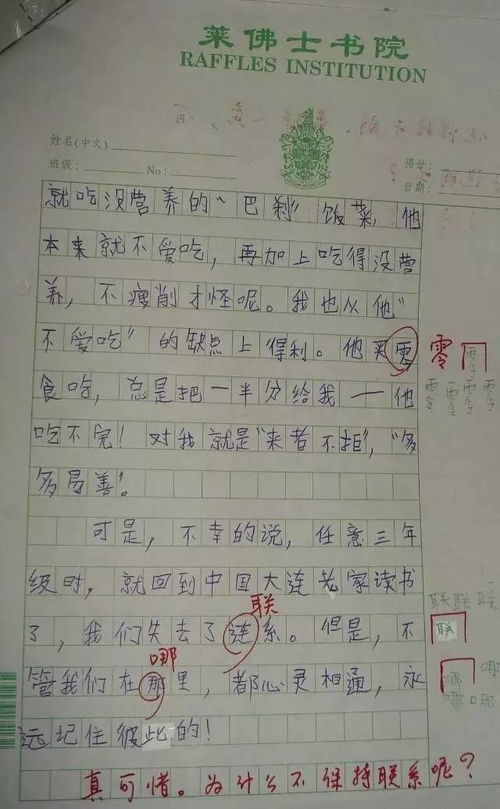 莱佛士书院
RAFFLES INSTITUTION
姓名(中文)
班级: No:
得分:
日期:
就吃没营养的“巴刹”饭菜,他
本来就不爱吃,再加上吃得没营
养,不瘦削才怪呢。我也从他“
不爱吃”的缺点上得利。他买零 零
食吃,总是把一半分给我——他
吃不完!对我就是“来者不拒”,“多
多易善”。
可是,不幸的说,任意三年
级时,就回到中国大连老家读书
联 联联联
了,我们失去了连系。但是,不 联
哪 哪
管我们在那里,都心灵相通,永 哪
远记住彼此的! 哪哪
真可惜。为什么不保持联系呢?